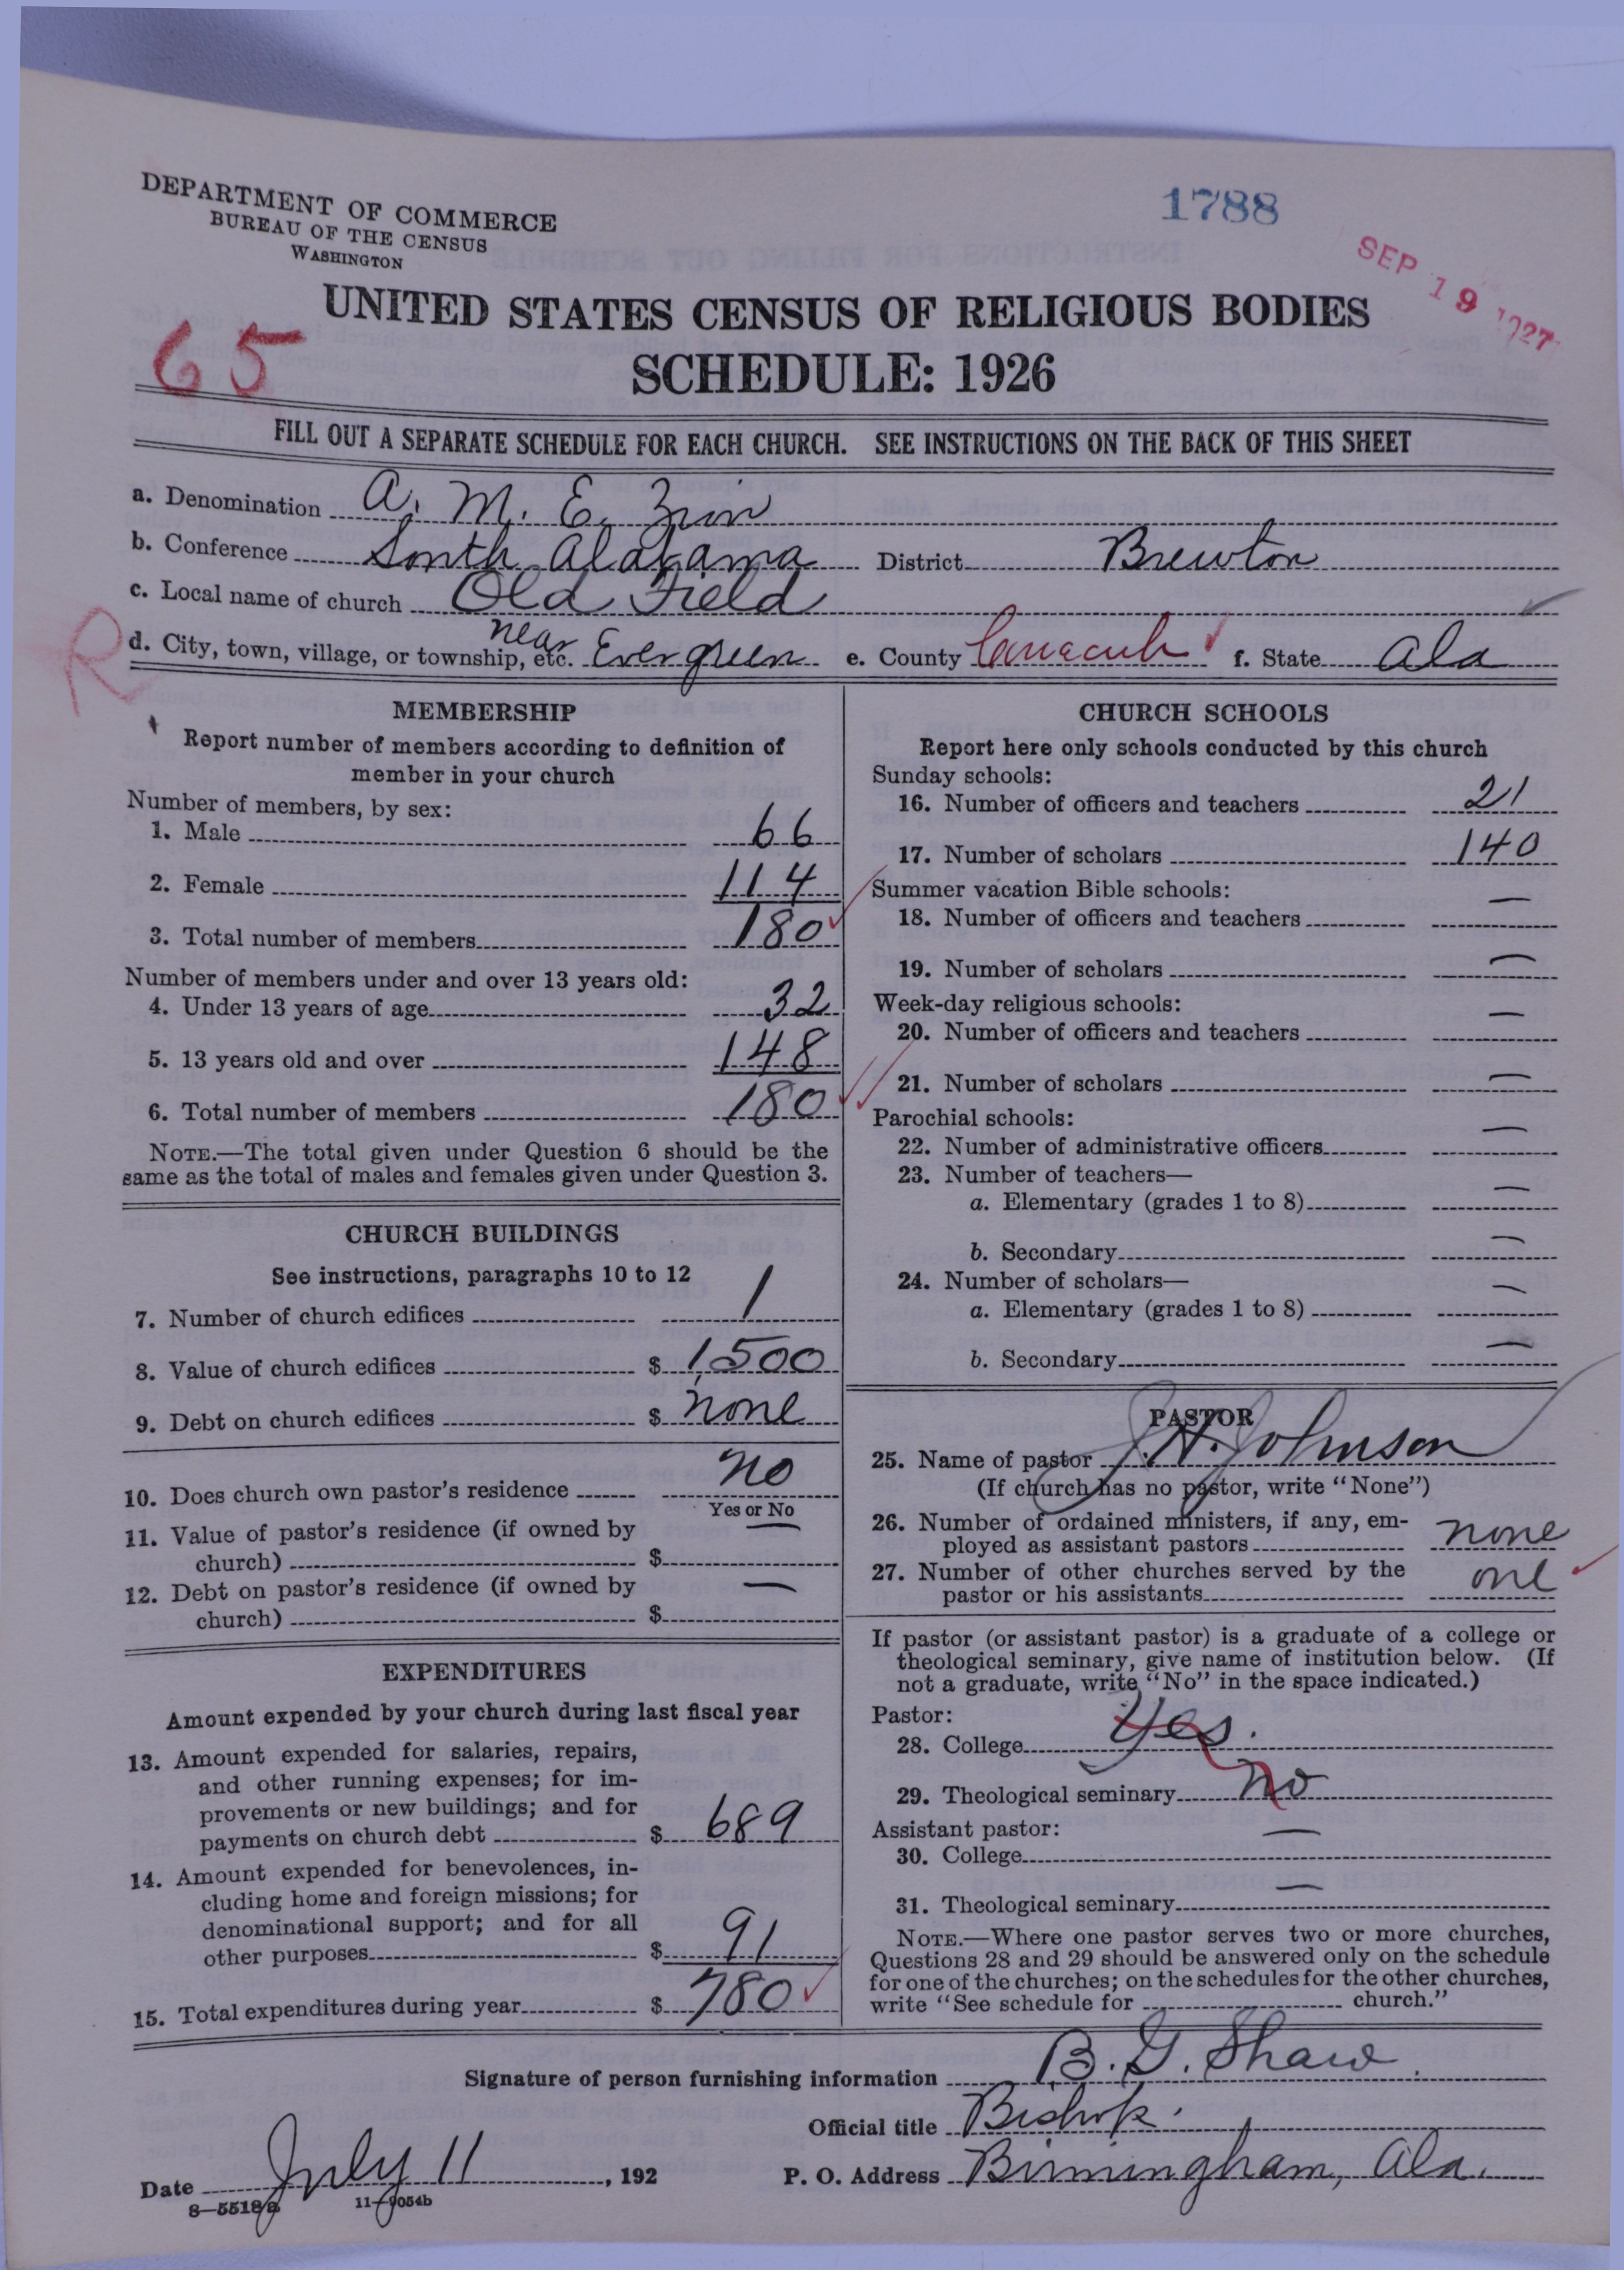 DEPARTMENT OF COMMERCE
BUREAU OF THE CENSUS
WASHINGTON
1788
SEP 19 1927
65
UNITED STATES CENSUS OF RELIGIOUS BODIES
SCHEDULE: 1926
FILL OUT A SEPARATE SCHEDULE FOR EACH CHURCH. SEE INSTRUCTIONS ON THE BACK OF THIS SHEET
a. Denomination A. M. E. Zion
b. Conference South Alabama District Brewton
c. Local name of church Old Field
R
d. City, town, village, or township, etc. near Evergreen e. County Conecuh f. State Ala
MEMBERSHIP
Report number of members according to definition of
member in your church
Number of members, by sex:
1. Male 66
2. Female 114
3. Total number of members 180
Number of members under and over 13 years old:
4. Under 13 years of age 32
5. 13 years old and over 148
6. Total number of members 180
NOTE.—The total given under Question 6 should be the
same as the total of males and females given under Question 3.
CHURCH BUILDINGS
See instructions, paragraphs 10 to 12
7. Number of church edifices 1
8. Value of church edifices $ 1,500
9. Debt on church edifices $ none
10. Does church own pastor's residence no
Yes or No
11. Value of pastor's residence (if owned by
church) $ —
12. Debt on pastor's residence (if owned by
church) $ —
EXPENDITURES
Amount expended by your church during last fiscal year
13. Amount expended for salaries, repairs,
and other running expenses; for im-
provements or new buildings; and for
payments on church debt $ 689
14. Amount expended for benevolences, in-
cluding home and foreign missions; for
denominational support; and for all
other purposes $ 91
15. Total expenditures during year $ 780
CHURCH SCHOOLS
Report here only schools conducted by this church
Sunday schools:
16. Number of officers and teachers 21
17. Number of scholars 140
Summer vacation Bible schools:
18. Number of officers and teachers —
19. Number of scholars —
Week-day religious schools:
20. Number of officers and teachers —
21. Number of scholars —
Parochial schools:
22. Number of administrative officers —
23. Number of teachers—
a. Elementary (grades 1 to 8) —
b. Secondary —
24. Number of scholars—
a. Elementary (grades 1 to 8) —
b. Secondary —
PASTOR
25. Name of pastor J. H. Johnson
(If church has no pastor, write "None")
26. Number of ordained ministers, if any, em-
ployed as assistant pastors none
27. Number of other churches served by the
pastor or his assistants one
If pastor (or assistant pastor) is a graduate of a college or
theological seminary, give name of institution below. (If
not a graduate, write "No" in the space indicated.)
Pastor:
28. College Yes.
29. Theological seminary no
Assistant pastor:
30. College —
31. Theological seminary —
NOTE.—Where one pastor serves two or more churches,
Questions 28 and 29 should be answered only on the schedule
for one of the churches; on the schedules for the other churches,
write "See schedule for church."
Signature of person furnishing information B. G. Shaw
Official title Bishop.
Date July 11, 192 P. O. Address Birmingham, Ala.
8—5518a 11—9054b